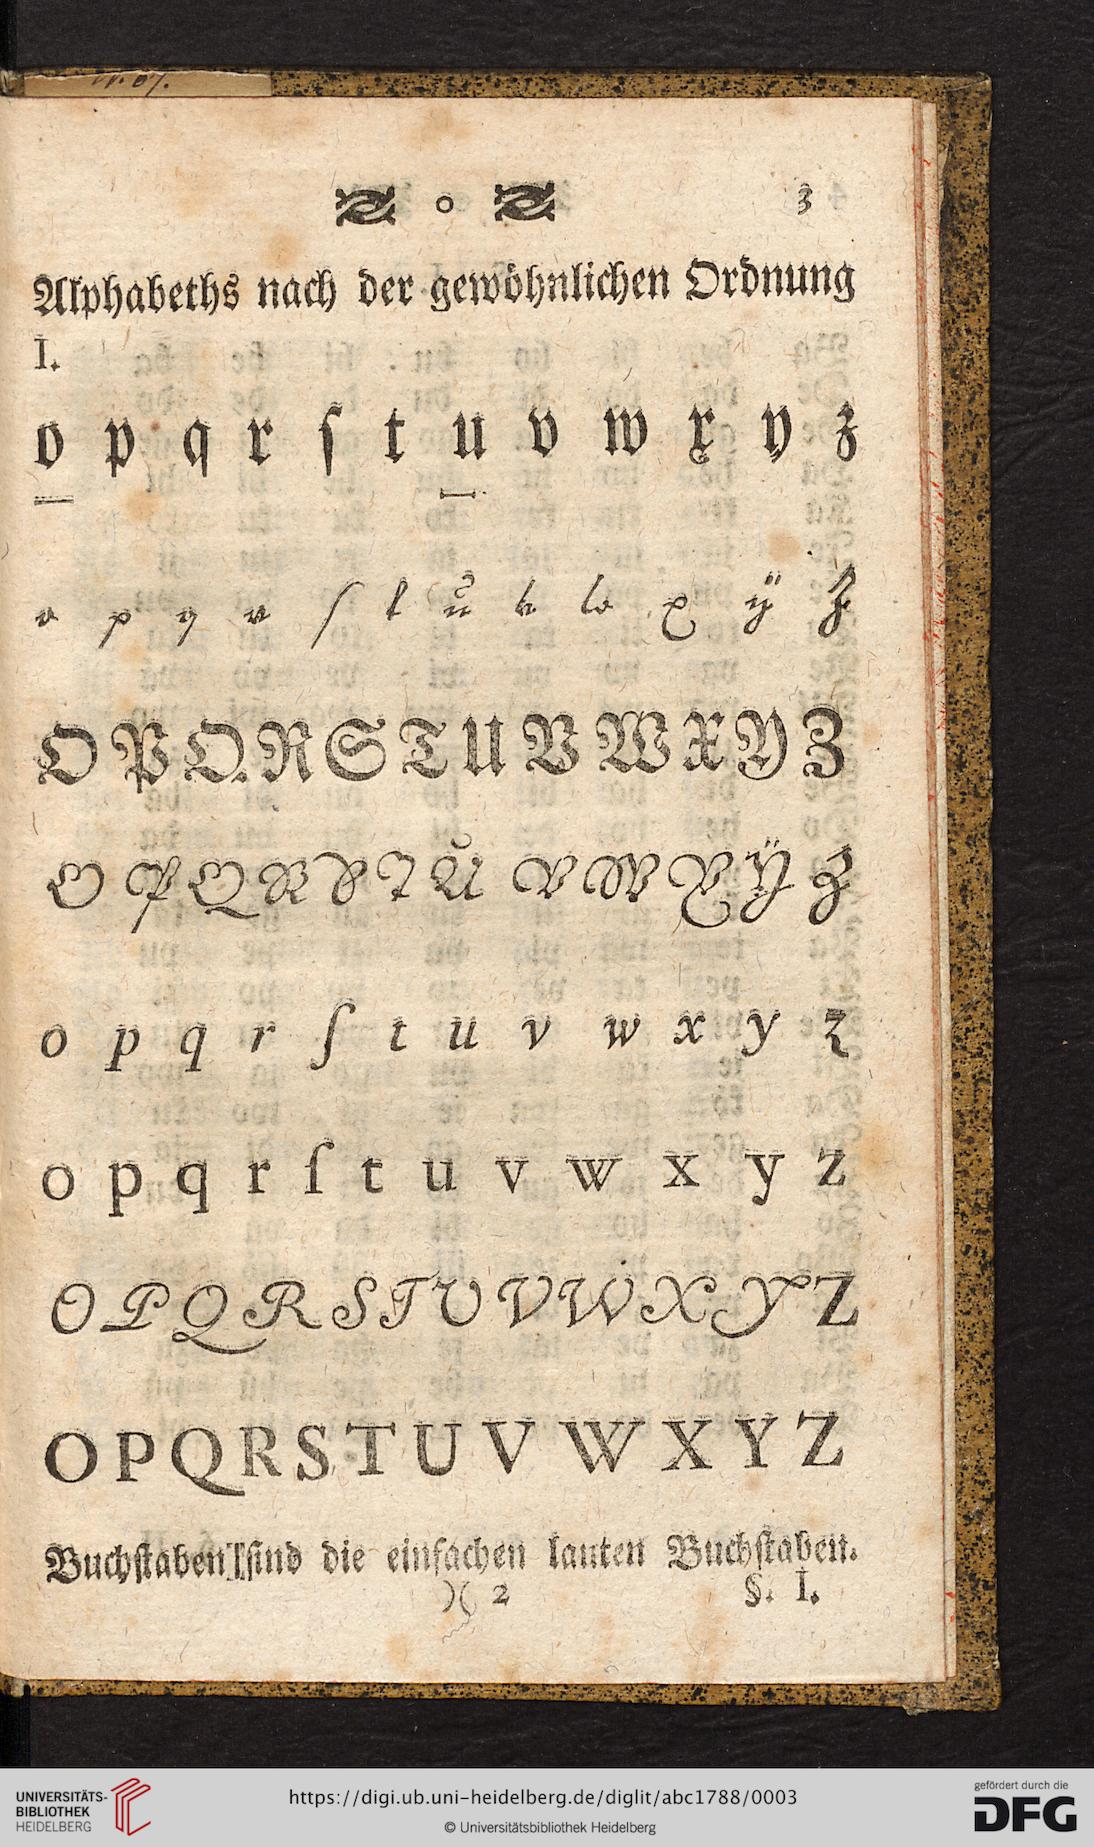 3
Alphabeths nach der gewöhnlichen Ordnung
I.
o p q r ſ t u v w x y z
o p q r ſ t u v w x ÿ z
O P Q R S T U V W X Y Z
O P Q R S T U V W X Ÿ Z
o p q r ſ t u v w x y z
o p q r ſ t u v w x y z
O P Q R S T U V W X Y Z
O P Q R S T U V W X Y Z
Buchſtaben [ſind die einfachen lauten Buchſtaben.
)( 2 §. I.
UNIVERSITÄTS-
BIBLIOTHEK
HEIDELBERG
https://digi.ub.uni-heidelberg.de/diglit/abc1788/0003
© Universitätsbibliothek Heidelberg
gefördert durch die
DFG